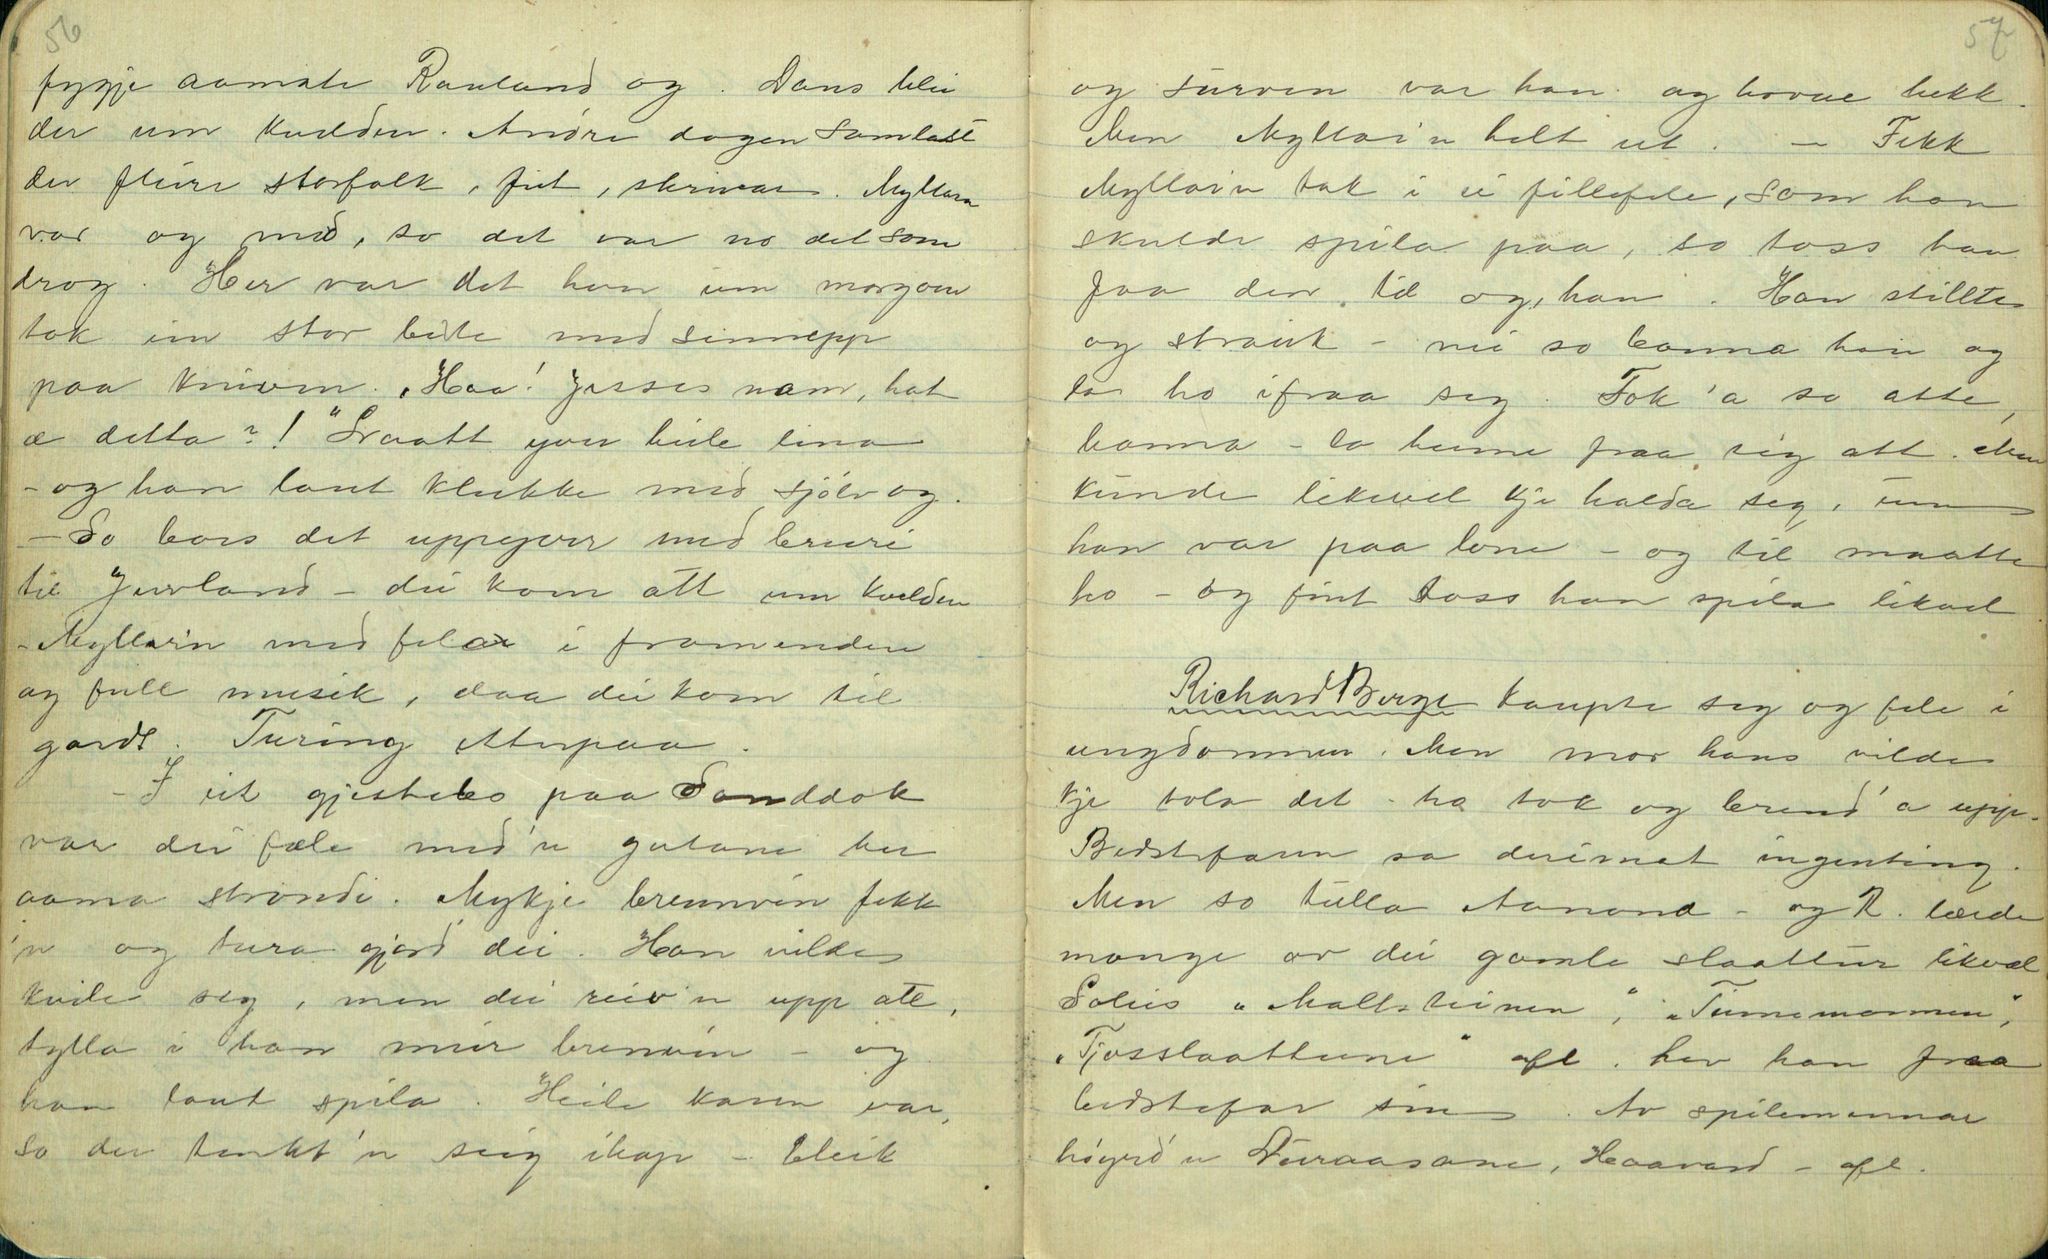 56
fygje aamste Rauland og. Dans blei
der um kvelden. Andre dagen samlast
der fleire storfolk, fut, skrivar. Myllarn
var og med, so det var no det som
drog. Her var det han um morgoen
tok ein stor beite med sinnepp
paa kniven. "Haa! Jesses nam, hat
æ detta?!" Svaatt yver heile lina
- og han laut klukke med sjölv og.
- So bars det uppgjerr med bruri
til Jurland - dei kom att um kvelden
- Myllar'n med felar i framenden
og full musik, daa dei kom til
gards. Turing etterpaa.
- I eit gjestebo paa Sanddok
var dei fæle med'n gutane her
aama strondi. Mykje brennvin fekk
'n og tura gjord' dei. Han vilde
kvile seg, men dei reiv'n upp att,
tylla i han meir brenvin - og
han laut spila. Heile karen var,
so der tenkt'n seig ihop - bleik
57
og turven var han og hovue hekk.
Men Myllar'n helt ut. - Fekk
Myllar'n tak i ei fillefele, som han
skulde spila paa, so toss han
faa den til og, han. Han stillte
og strauk - nei so banna han og
la ho ifraa seg. Tok 'a so atte,
banna - la henne fraa seg att. Men
kunde likevel kje halda seg, um
han var paa lene - og til maatte
ho - og fint toss han spila likvel
Richard Berge kaupte seg og fele i
ungdommen. Men mor hans vilde
kje tola det - ho tok og brend'a upp.
Bedstefaren sa derimot ingenting.
Men so tulla Aanond - og R. lærde
mange av dei gamle slaattur likvæl
Soleis "Malt-steinen", "Tinnemannen",
"Fjosslaattene" ofl. hev han fraa
bedstefar sin. Av spilemennar
höyrd'n Duraasane, Haavard - ofl.